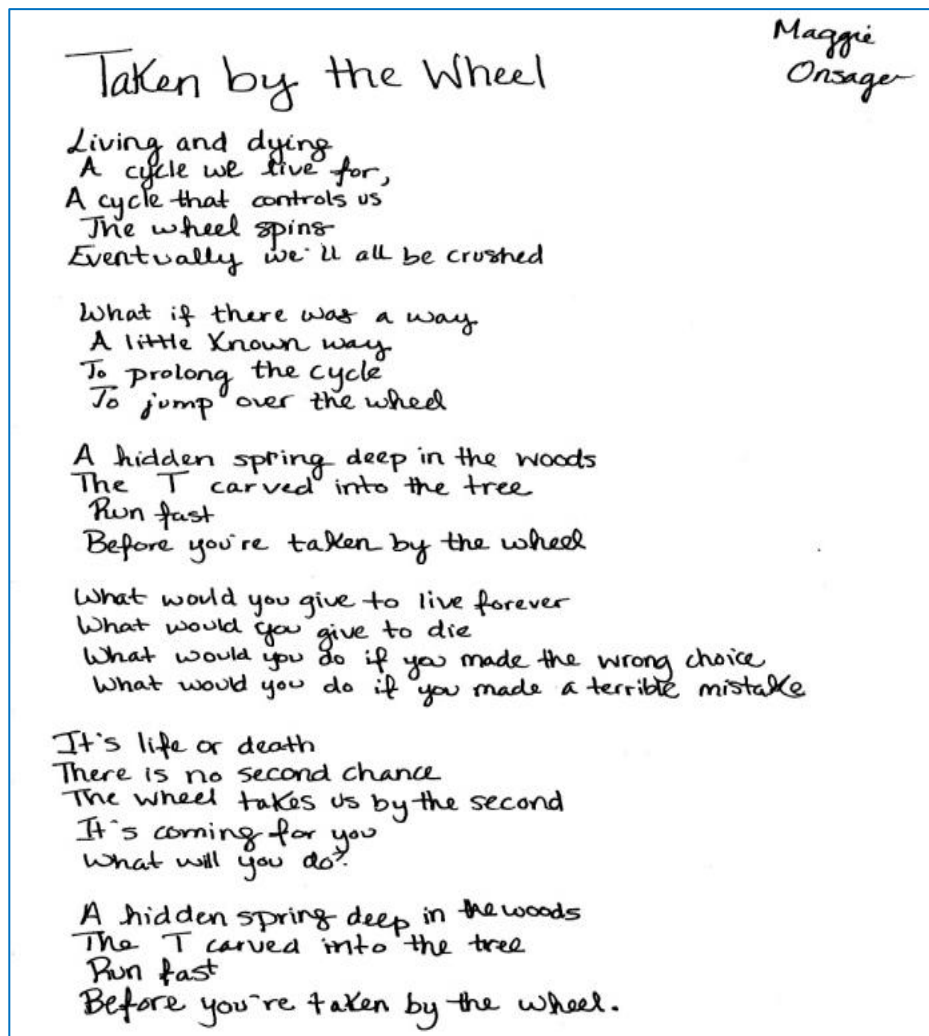 Maggie
Onsager
Taken by the Wheel
Living and dying
A cycle we live for,
A cycle that controls us
The wheel spins
Eventually we'll all be crushed
What if there was a way
A little known way
To prolong the cycle
To jump over the wheel
A hidden spring deep in the woods
The T carved into the tree
Run fast
Before you're taken by the wheel
What would you give to live forever
What would you give to die
What would you do if you made the wrong choice
What would you do if you made a terrible mistake
It's life or death
There is no second chance
The wheel takes us by the second
It's coming for you
What will you do?
A hidden spring deep in the woods
The T carved into the tree
Run fast
Before you're taken by the wheel.